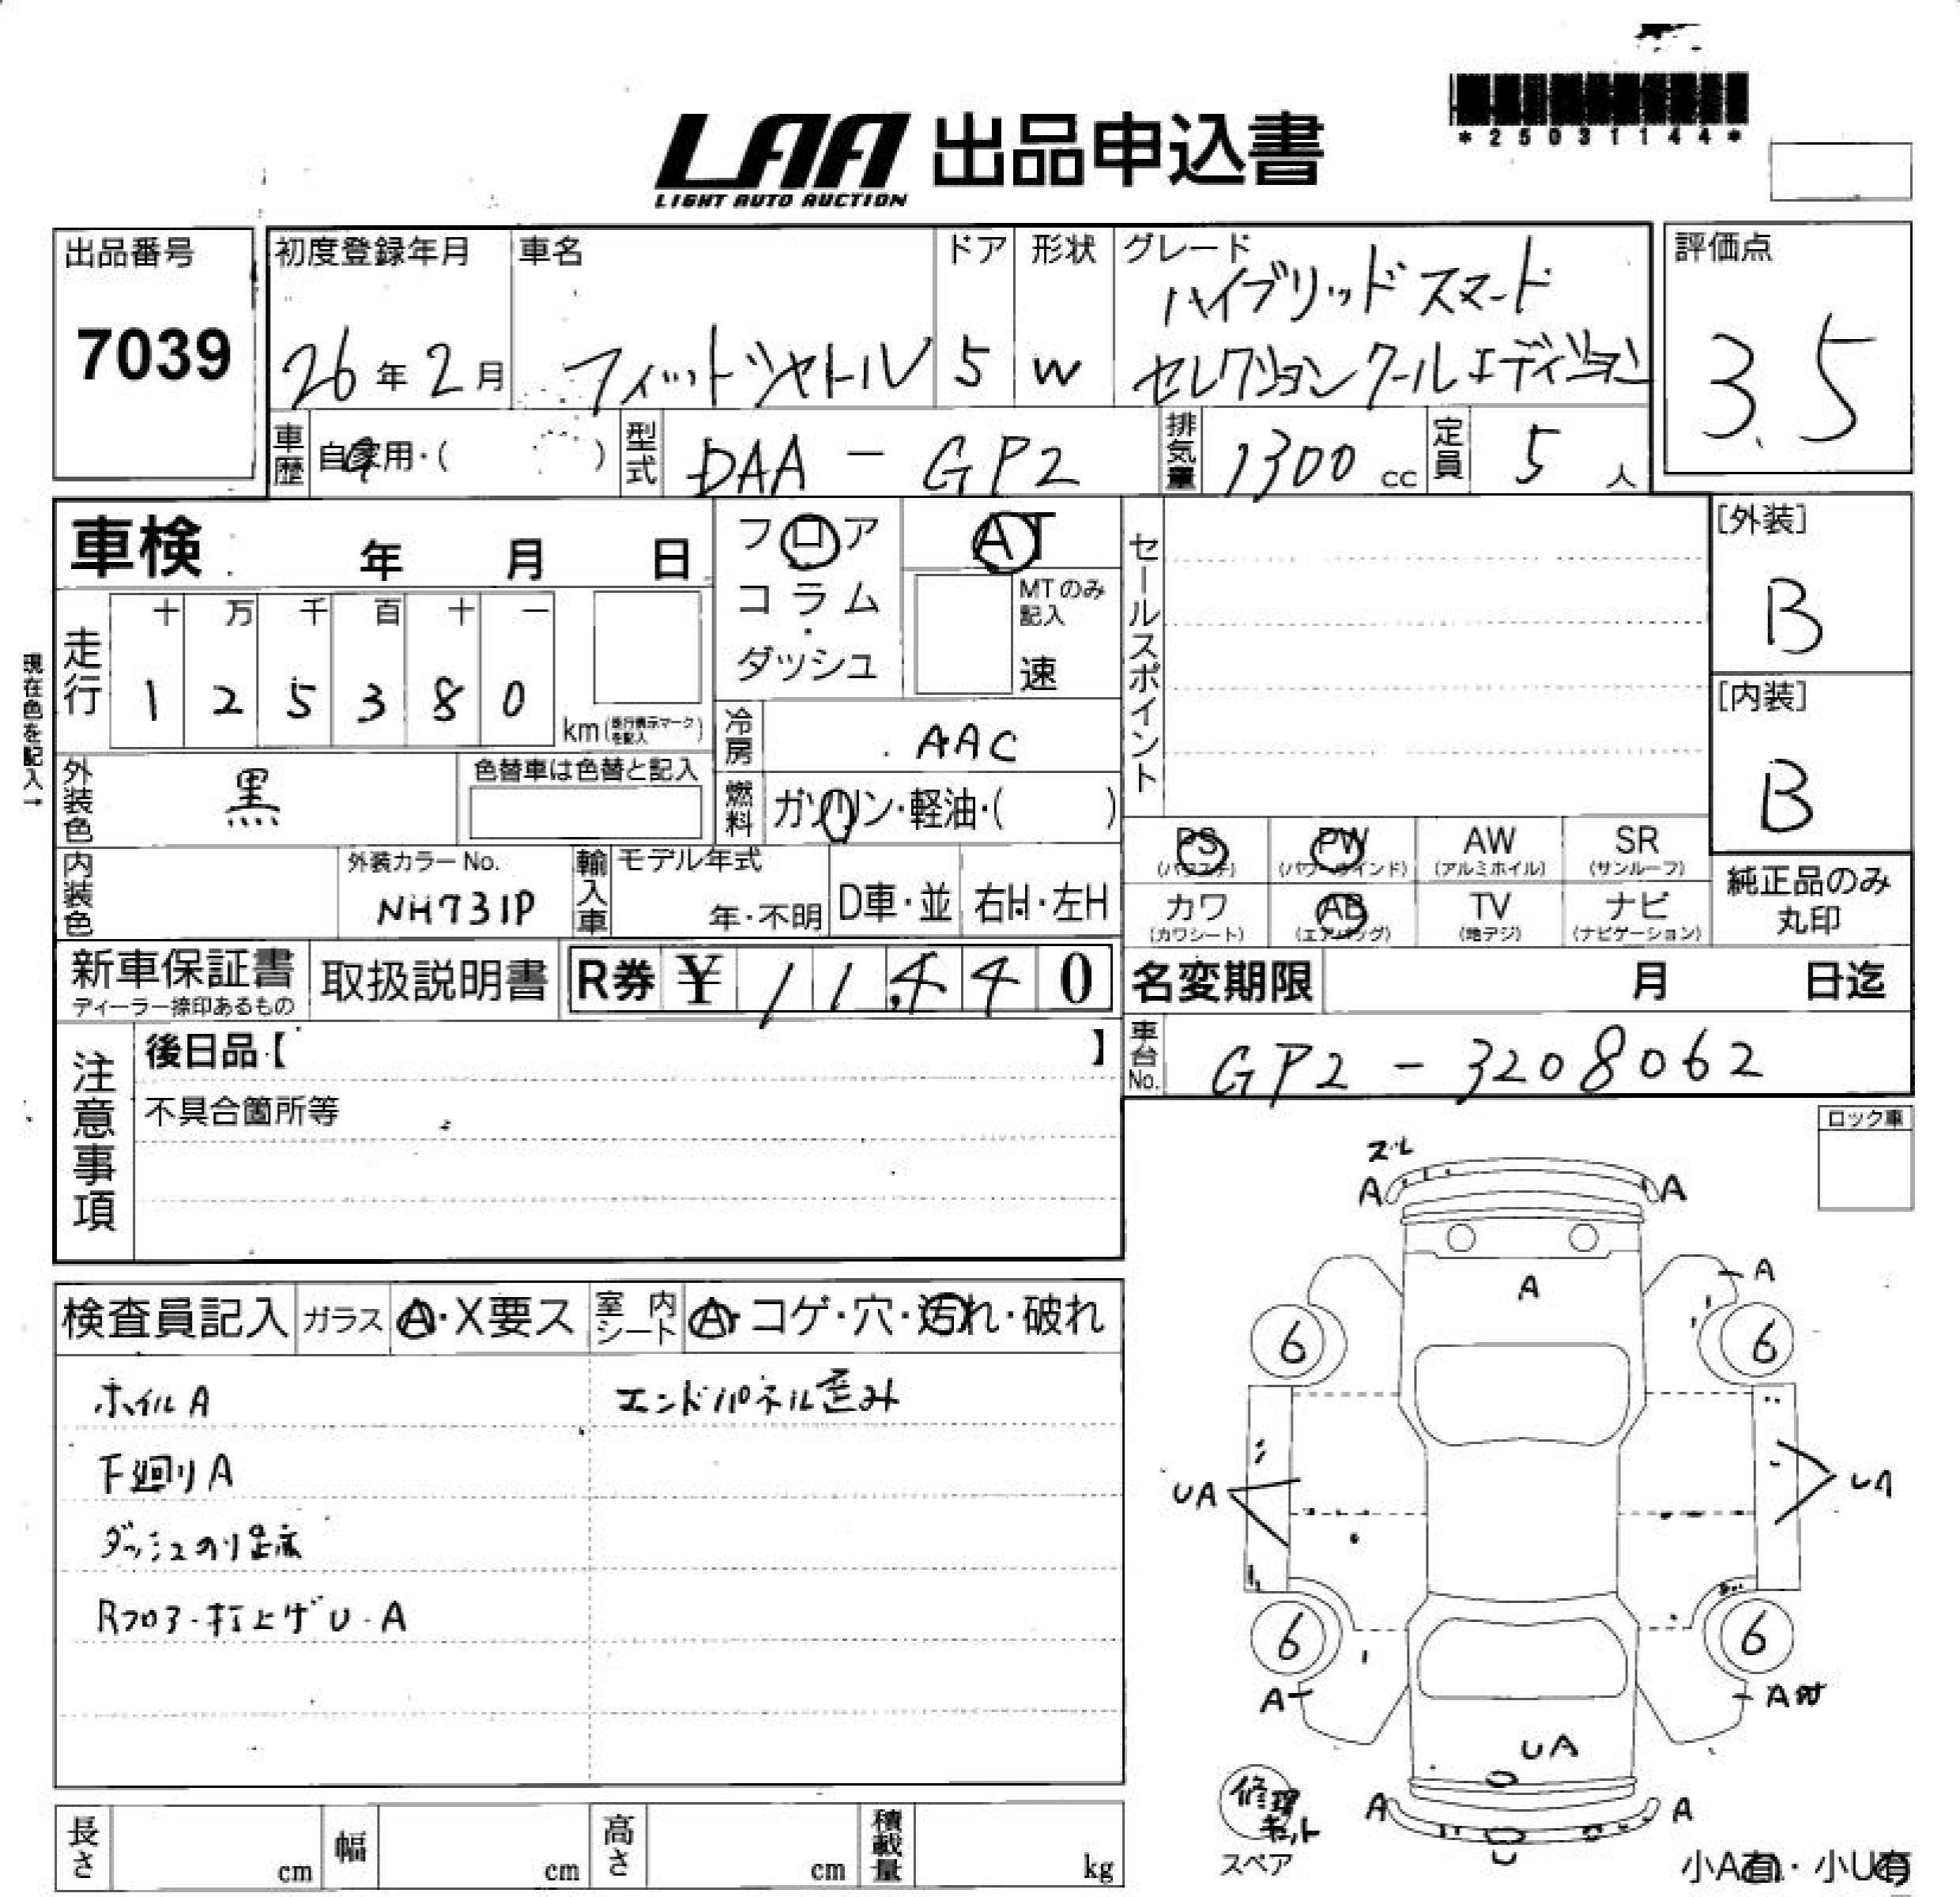 *25031144*
LAA 出品申込書
LIGHT AUTO AUCTION
出品番号
7039
初度登録年月
26年2月
車名
フィットシャトル
ドア
5
形状
W
グレード
ハイブリッドスマート
セレクションクールエディション
評価点
3.5
車歴
自家用・( )
型式
DAA-GP2
排気量
1300 cc
定員
5 人
車検 年 月 日
フロア
コラム
ダッシュ
AT
MTのみ
記入
速
セールスポイント
[外装]
B
[内装]
B
現在色を記入→
走行
十 万 千 百 十 一
1 2 5 3 8 0
km(走行表示マークを記入)
冷房
AAC
燃料
ガソリン・軽油・( )
外装色
黒
色替車は色替と記入
内装色
外装カラーNo.
NH731P
輸入車
モデル年式
年・不明
D車・並
右H・左H
PS
(パワステ)
PW
(パワーウインド)
AW
(アルミホイル)
SR
(サンルーフ)
カワ
(カワシート)
AB
(エアバッグ)
TV
(地デジ)
ナビ
(ナビゲーション)
純正品のみ
丸印
新車保証書
ディーラー捺印あるもの
取扱説明書
R券 ¥ 11,440
名変期限 月 日迄
車台No.
GP2-3208062
注意事項
後日品【 】
不具合箇所等
ロック車
検査員記入
ガラス
A・X要ス
室内シート
A・コゲ・穴・汚れ・破れ
ホイルA
エンドパネル歪み
下廻りA
ダッシュのり跡
Rフロア・打上げU・A
ズレ
A
A
A
A
6
6
UA
UA
6
6
A
A
UA
A
A
修理
キット
スペア
小A有・小U有
長さ
cm
幅
cm
高さ
cm
積載量
kg